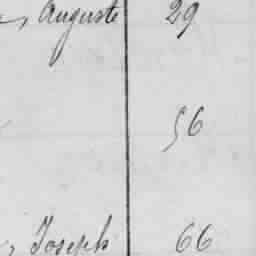 , Auguste 29
56
, Joseph 66